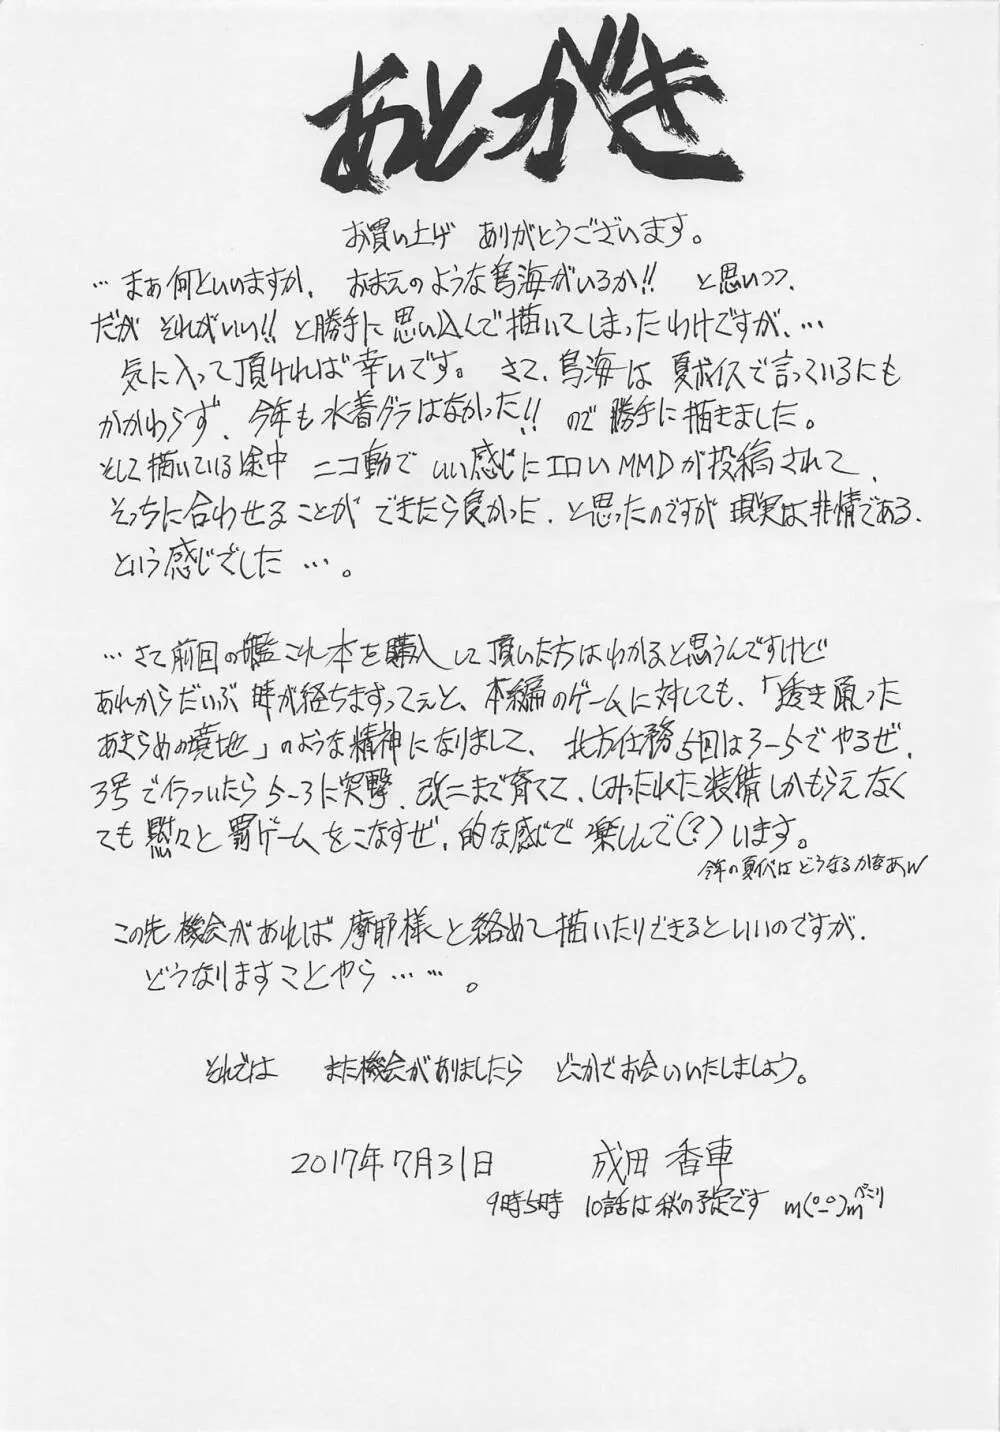 あとがき
お買い上げ ありがとうございます。
…まぁ何といいますか、おまえのような鳥海がいるか!! と思いつつ、
だが それがいい!! と勝手に思い込んで描いてしまったわけですが、…
気に入って頂ければ幸いです。さて、鳥海は 夏ボイスで言っているにも
かかわらず、今年も水着グラはなかった!! ので勝手に描きました。
そして描いている途中 ニコ動で いい感じにエロいMMDが投稿されて、
そっちに合わせることが できたら良かった、と思ったのですが 現実は非情である、
という感じでした…。
…さて前回の艦これ本を購入して頂いた方はわかると思うんですけど
あれからだいぶ 時が経ちますってぇと、本編のゲームに対しても、「透き通った
あきらめの境地」のような精神になりまして、北方任務5回は3-5でやるぜ、
3号で行ついたら5-3に突撃、改二まで育てて、しみったれた装備しかもらえなく
ても黙々と罰ゲームをこなすぜ、的な感じで 楽しんで(?)います。
今年の夏イベは どうなるかなぁw
この先 機会があれば 摩耶様と絡めて描いたりできるといいのですが、
どうなりますことやら……。
それでは また機会がありましたら どこかでお会いいたしましょう。
2017年7月31日 成田 香車
9時5時 10話は秋の予定です m(°_°)m ぺこり